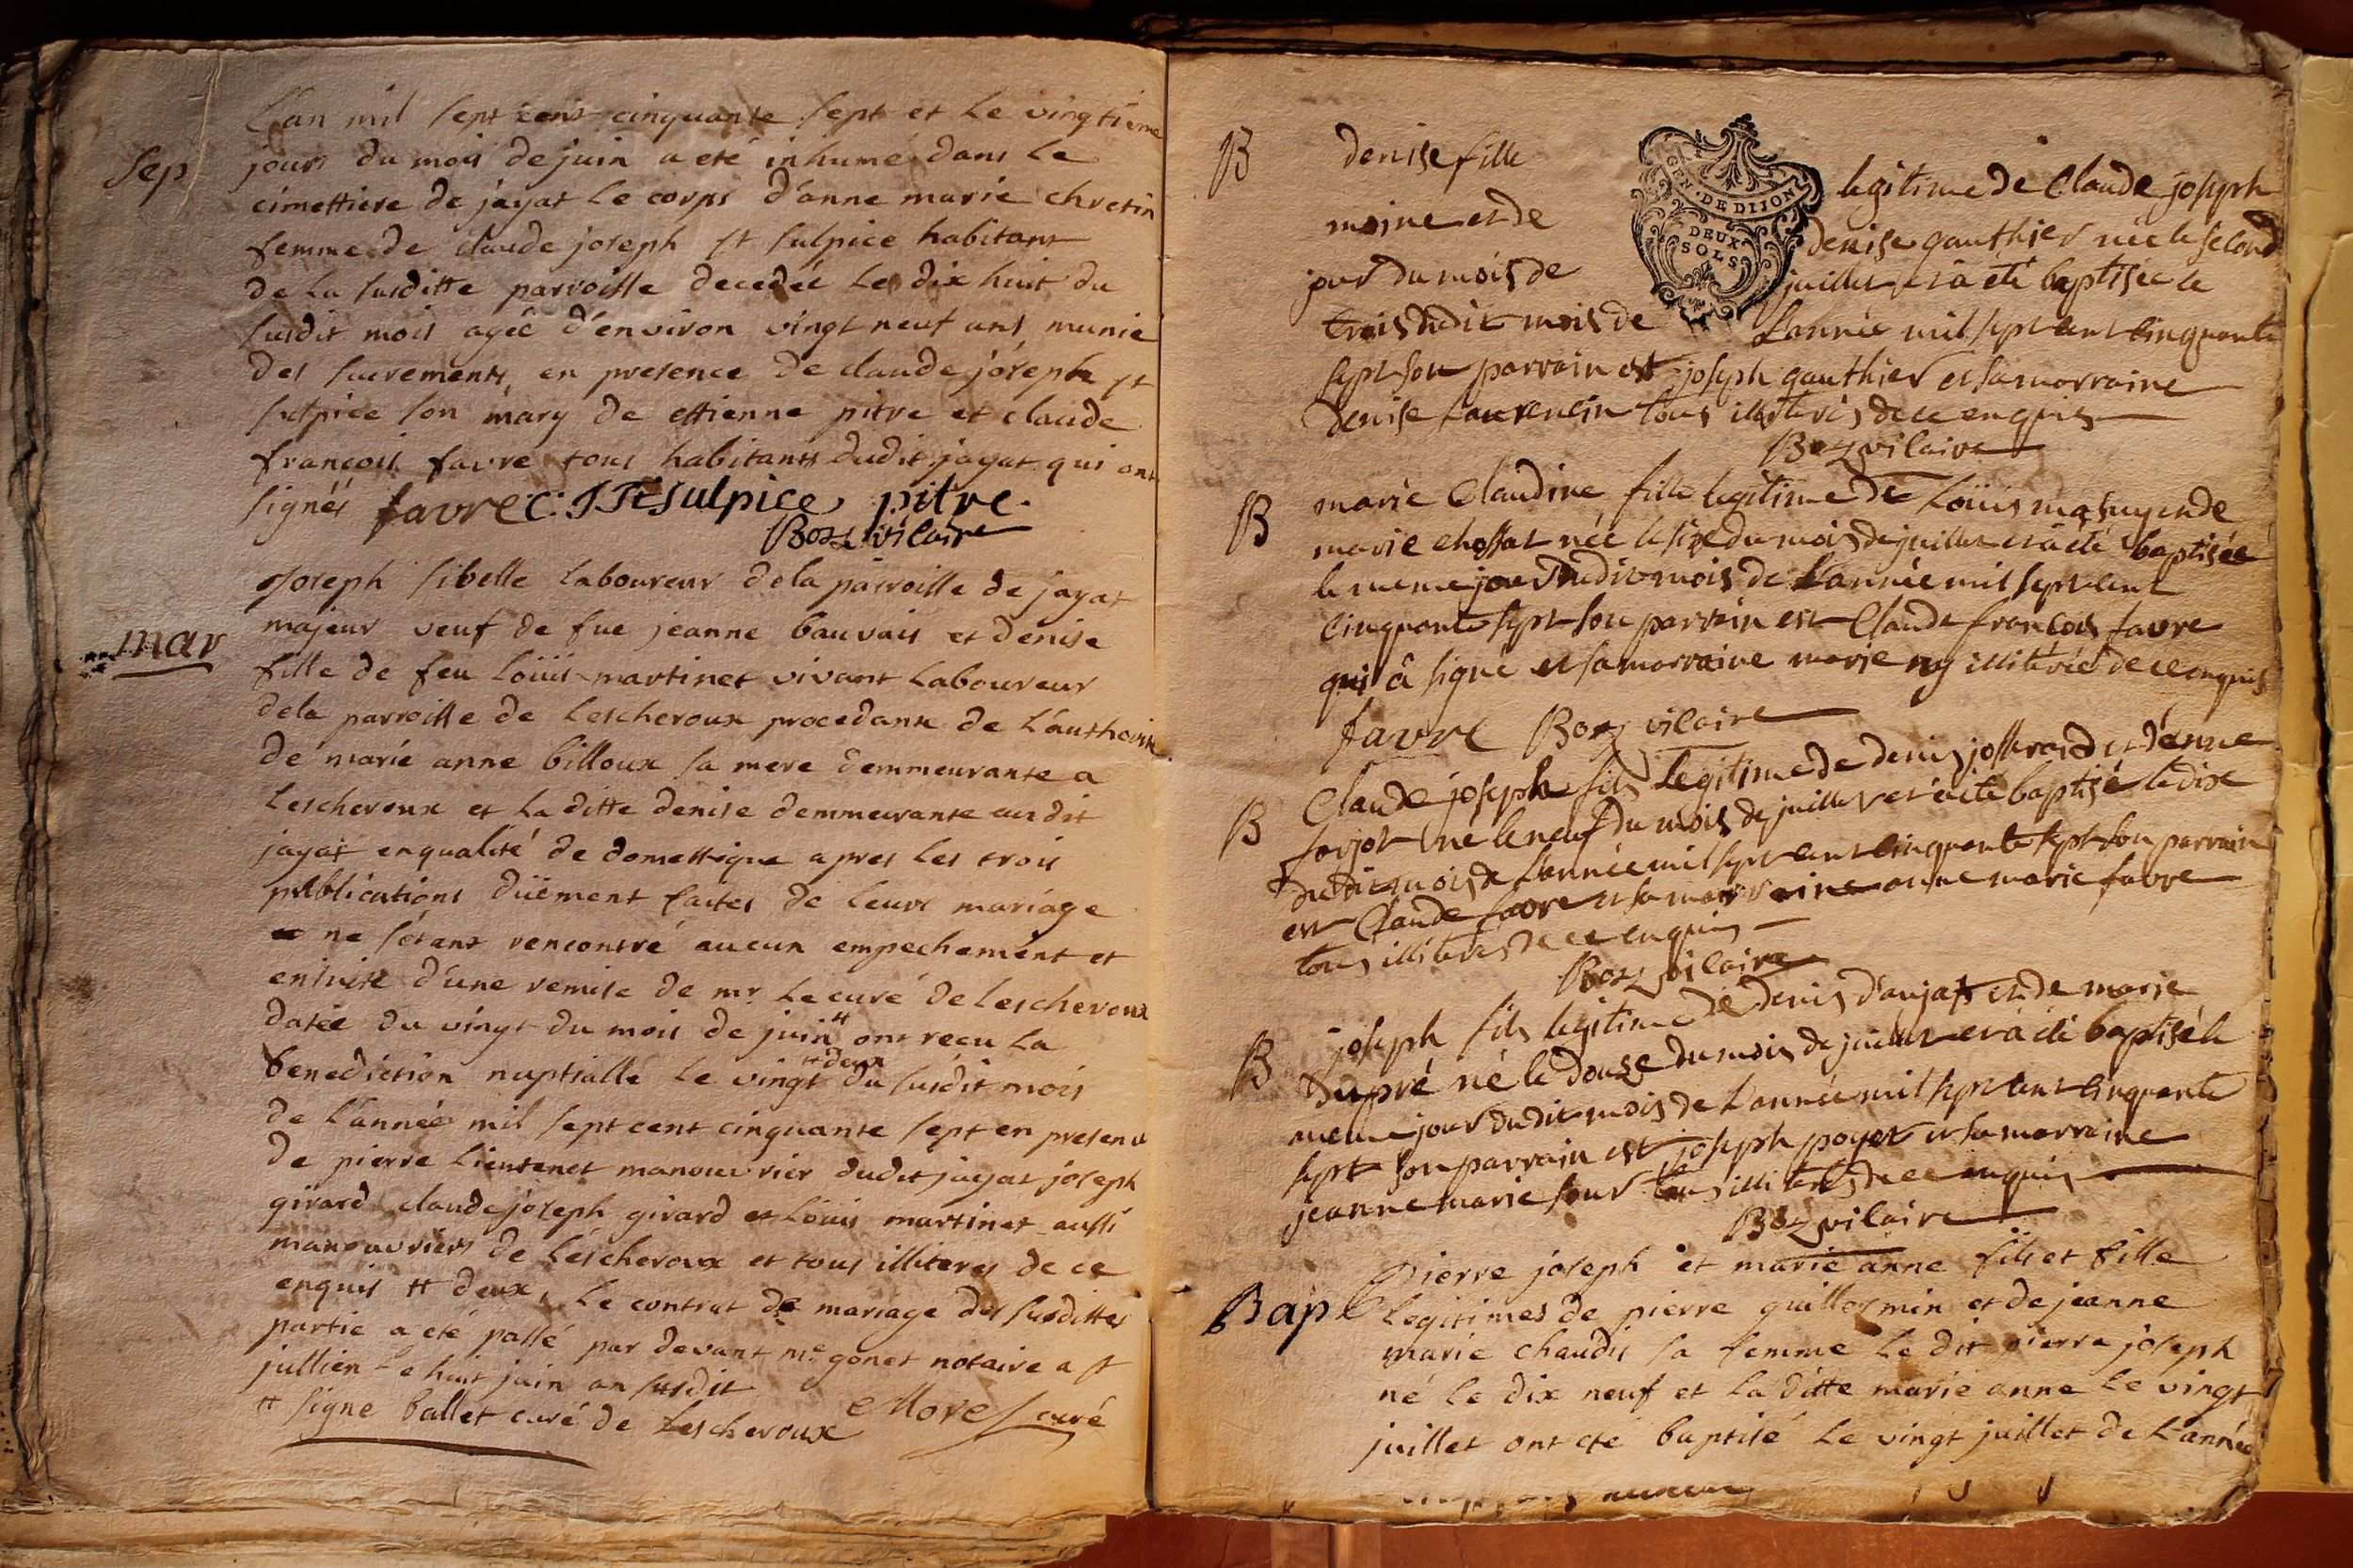 L'an mil sept cens cinquante sept et le vingtieme
Sep
jours du mois de juin a eté inhumé dans le
cimettiere de jayat le corps d'anne marie chretin
femme de claude joseph st sulpice habitant
de la susditte parroisse decedée le dix huit du
susdit mois agée d'environ vingt neuf ans, munie
des sacrements, en presence de claude joseph st
sulpice son mary de ettienne pitre et claude
françois favre tous habitants dudit jayat qui ont
signés favre C: J St Sulpice pitre.
Boz vilaire
Joseph sibelle laboureur de la parroisse de jayat
mar
majeur veuf de fue jeanne bauvais et denise
fille de feu loüis martinet vivant laboureur
de la parroisse de lescheroux procedante de l'authorité
de marie anne billoux sa mere demmeurante a
lescheroux et la ditte denise demmeurante audit
jayat en qualité de domestique apres les trois
publications düement faites de leurs mariage
ne s'étant rencontré aucun empechement et
ensuite d'une remise de mr. le curé de lescheroux
datée du vingt du mois de juin # ont recu la
# deux
benediction nuptialle le vingt du susdit mois
de l'année mil sept cent cinquante sept en presence
de pierre lieutenet manouvrier dudit jayat joseph
girard claude joseph girard et Loüis martinet aussi
manouvriers de Lescheroux et tous illiteres de ce
enquis # deux, Le contrat de mariage des susdittes
partie a eté passé par devant me gonet notaire a st
jullien le huit juin an susdit
# signe ballet curé de Lescheroux Morel curé
B
denise fille legitime de Claude joseph
GEN · DE DIJON
DEUX
SOLS
moine et de denise gauthier née le second
jour du mois de juillet et à été baptisée le
trois dudit mois de L'année mil sept cent cinquante
sept son parrain est joseph gauthier et sa marraine
denise Laurencin tous illiterés de ce enquis
Boz vilaire
B
marie Claudine fille legitime de Loüis masuy et de
marie chossat née le size du mois de juillet et à été baptisée
le meme jour dudit mois de L'année mil sept cent
cinquante sept son parrain est Claude francois favre
qui à signé et sa marraine marie ny illiterée de ce enquis
favre Boz vilaire
B
Claude joseph fils legitime de denis josserand et d'anne
sorjot né le neuf du mois de juillet et à été baptisé le dix
dudit mois de L'année mil sept cent cinquante sept son parrain
est Claude favre et sa marraine anne marie favre
tous illiterés de ce enquis
Boz vilaire
B
joseph fils legitime de denis d'aujat et de marie
dupré né le douze du mois de juillet et à été baptisé le
meme jour dudit mois de L'année mil sept cent cinquante
sept son parrain est joseph poyet et sa marraine
jeanne marie sour tous illiterés de ce enquis
Boz vilaire
Bap
Pierre joseph et marie anne fils et fille
legitimes de pierre guillermin et de jeanne
marie chaudis sa femme le dit pierre joseph
né le dix neuf et la ditte marie anne le vingt
juillet ont eté baptisé le vingt juillet de L'année